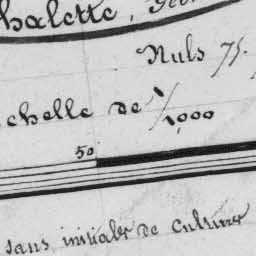 halette, Géo
Nuls 75.
chelle de 1/1,000
50
sans initiales de Cultures